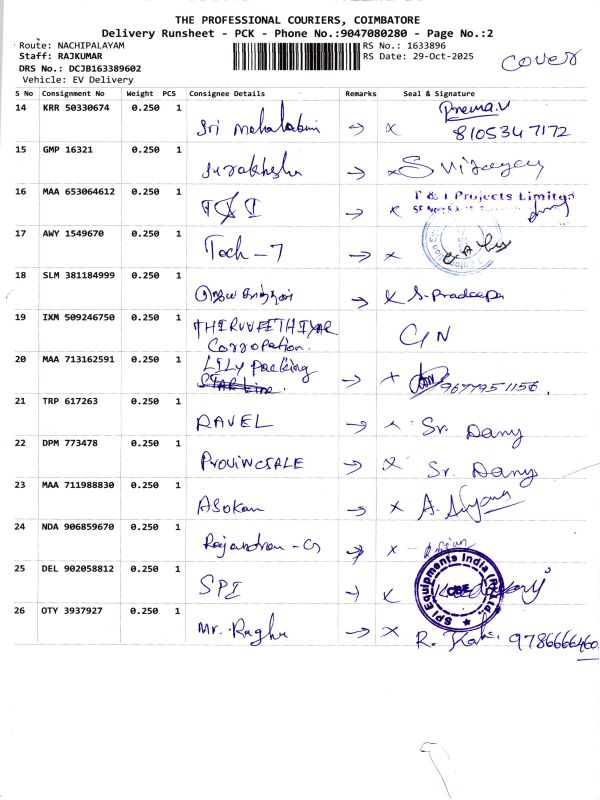 THE PROFESSIONAL COURIERS, COIMBATORE
Delivery Runsheet - PCK - Phone No.:9047080280 - Page No.:2
Route: NACHIPALAYAM RS No.: 1633896
Staff: RAJKUMAR RS Date: 29-Oct-2025
cover
DRS No.: DCJB163389602
Vehicle: EV Delivery
S No Consignment No Weight PCS Consignee Details Remarks Seal & Signature
14 KRR 50330674 0.250 1 Sri Mahalakmi → x Prema.V
8105347172
15 GMP 16321 0.250 1 → x S Vijayay
16 MAA 653064612 0.250 1 T & I → x T & I Projects Limited
17 AWY 1549670 0.250 1 Tech - 7 → x
18 SLM 381184999 0.250 1 → x S. Pradeepa
19 IXM 509246750 0.250 1 THIRUVEETHIYAR
Corporation. C/N
20 MAA 713162591 0.250 1 LILY packing
STAR Line. → x 9677951156.
21 TRP 617263 0.250 1 RAVEL → x Sr. Dany
22 DPM 773478 0.250 1 PROVINCSALE → x Sr. Dany
23 MAA 711988830 0.250 1 ASokan → x A.
24 NDA 906859670 0.250 1 Rajandran - G → x
25 DEL 902058812 0.250 1 SPI → x SPI Equipments India (P) Ltd. CBE
26 OTY 3937927 0.250 1 Mr. Raghu → x R. 9786666460